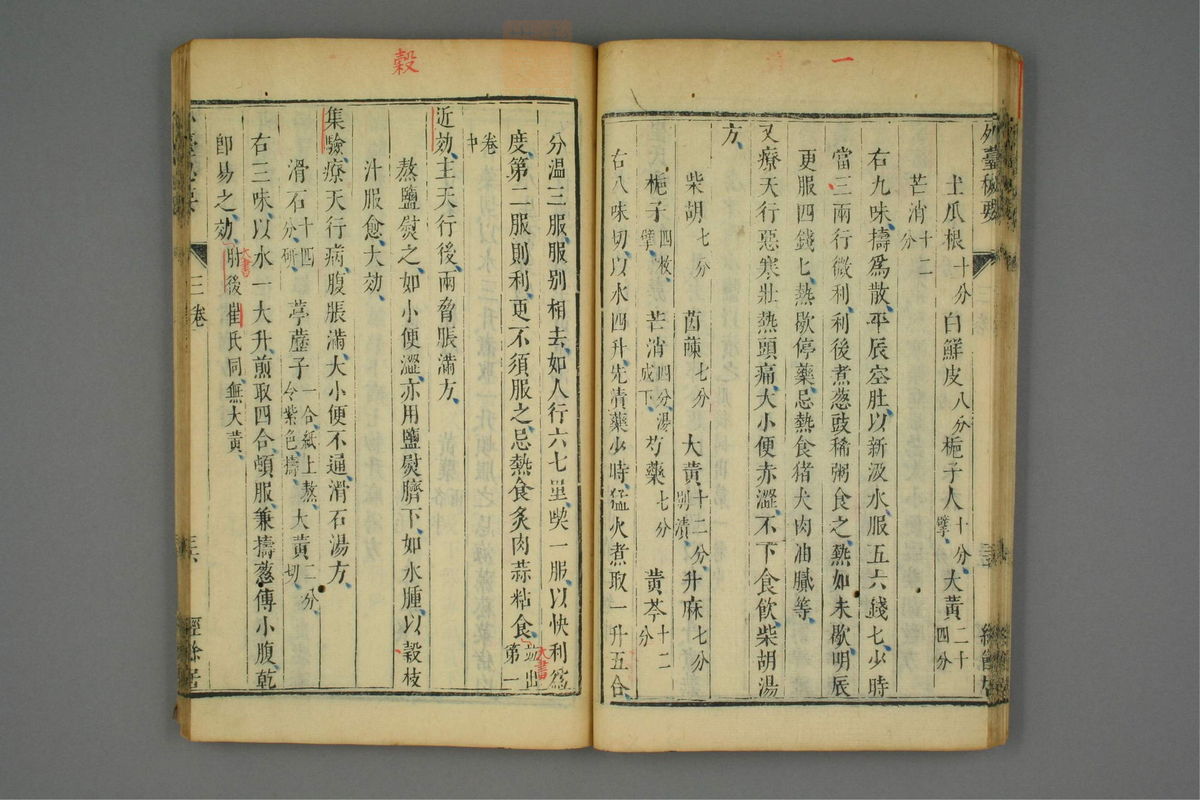 一
外臺秘要
土瓜根十分 白鮮皮八分 梔子人十分擘 大黃二十四分
芒消十二分
右九味擣爲散平辰空肚以新汲水服五六錢匕少時
當三兩行微利利後煮葱豉稀粥食之熱如未歇明辰
更服四錢匕熱歇停藥忌熱食猪犬肉油膩等
又療天行惡寒壯熱頭痛大小便赤澀不下食飲柴胡湯
方
柴胡七分 茵蔯七分 大黃十二分別漬 升麻七分
梔子四枚擘 芒消四分湯成下 芍藥七分 黃芩十二分
右八味切以水四升先漬藥少時猛火煮取一升五合
分溫三服服别相去如人行六七里喫一服以快利爲
度第二服則利更不須服之忌熱食炙肉蒜粘食並出第一
卷中
大書
近効主天行後兩脅脹滿方
熬鹽熨之如小便澀亦用鹽熨臍下如水腫以榖枝
汁服愈大効
穀
集驗療天行病腹脹滿大小便不通滑石湯方
滑石十四分研 葶藶子一合紙上熬令紫色擣 大黃二分切
右三味以水一大升煎取四合頓服兼擣葱傅小腹乾
卽易之効肘後崔氏同無大黃
大書
三卷
經餘居